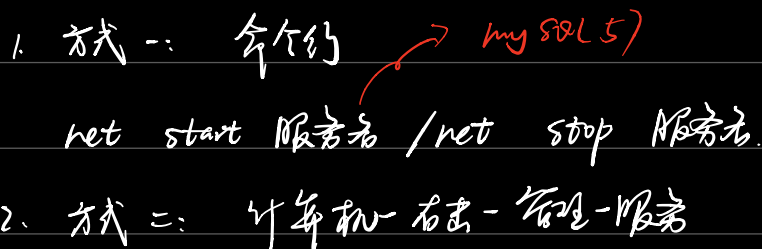 1. 方式一: 命令行 mysql57
net start 服务名 /net stop 服务名.
2、方式二: 计算机-右击-管理-服务